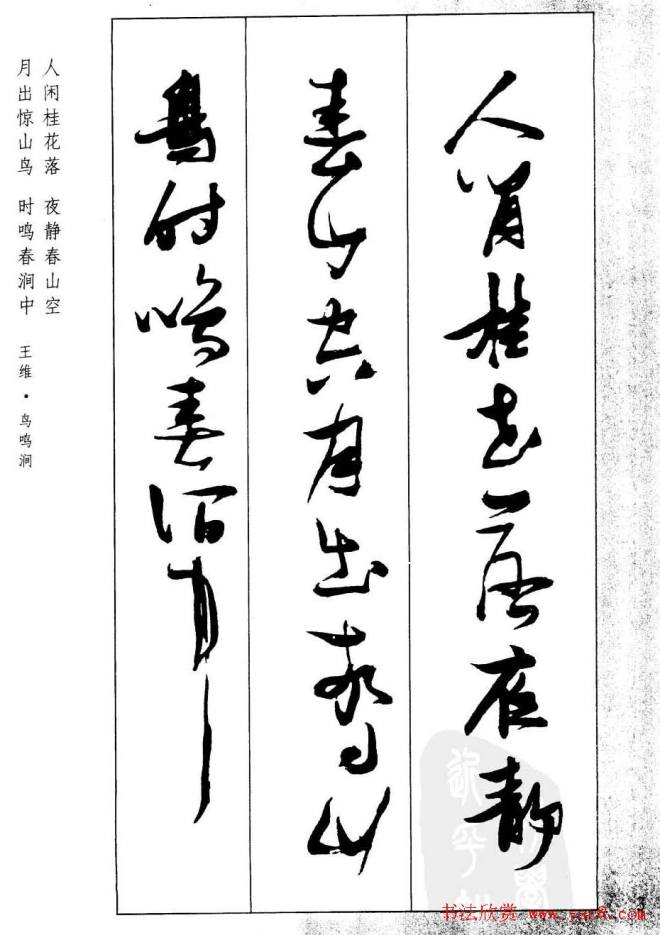 人闲桂花落夜静
春山空月出惊山
鸟时鸣春涧中
人闲桂花落 夜静春山空
月出惊山鸟 时鸣春涧中
王维·鸟鸣涧
书法欣赏 www.yac8.com